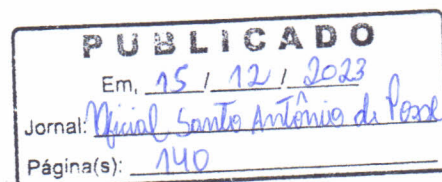 PUBLICADO
Em, 15 / 12 / 2023
Jornal: Oficial Santo Antônio de Posse
Página(s): 140